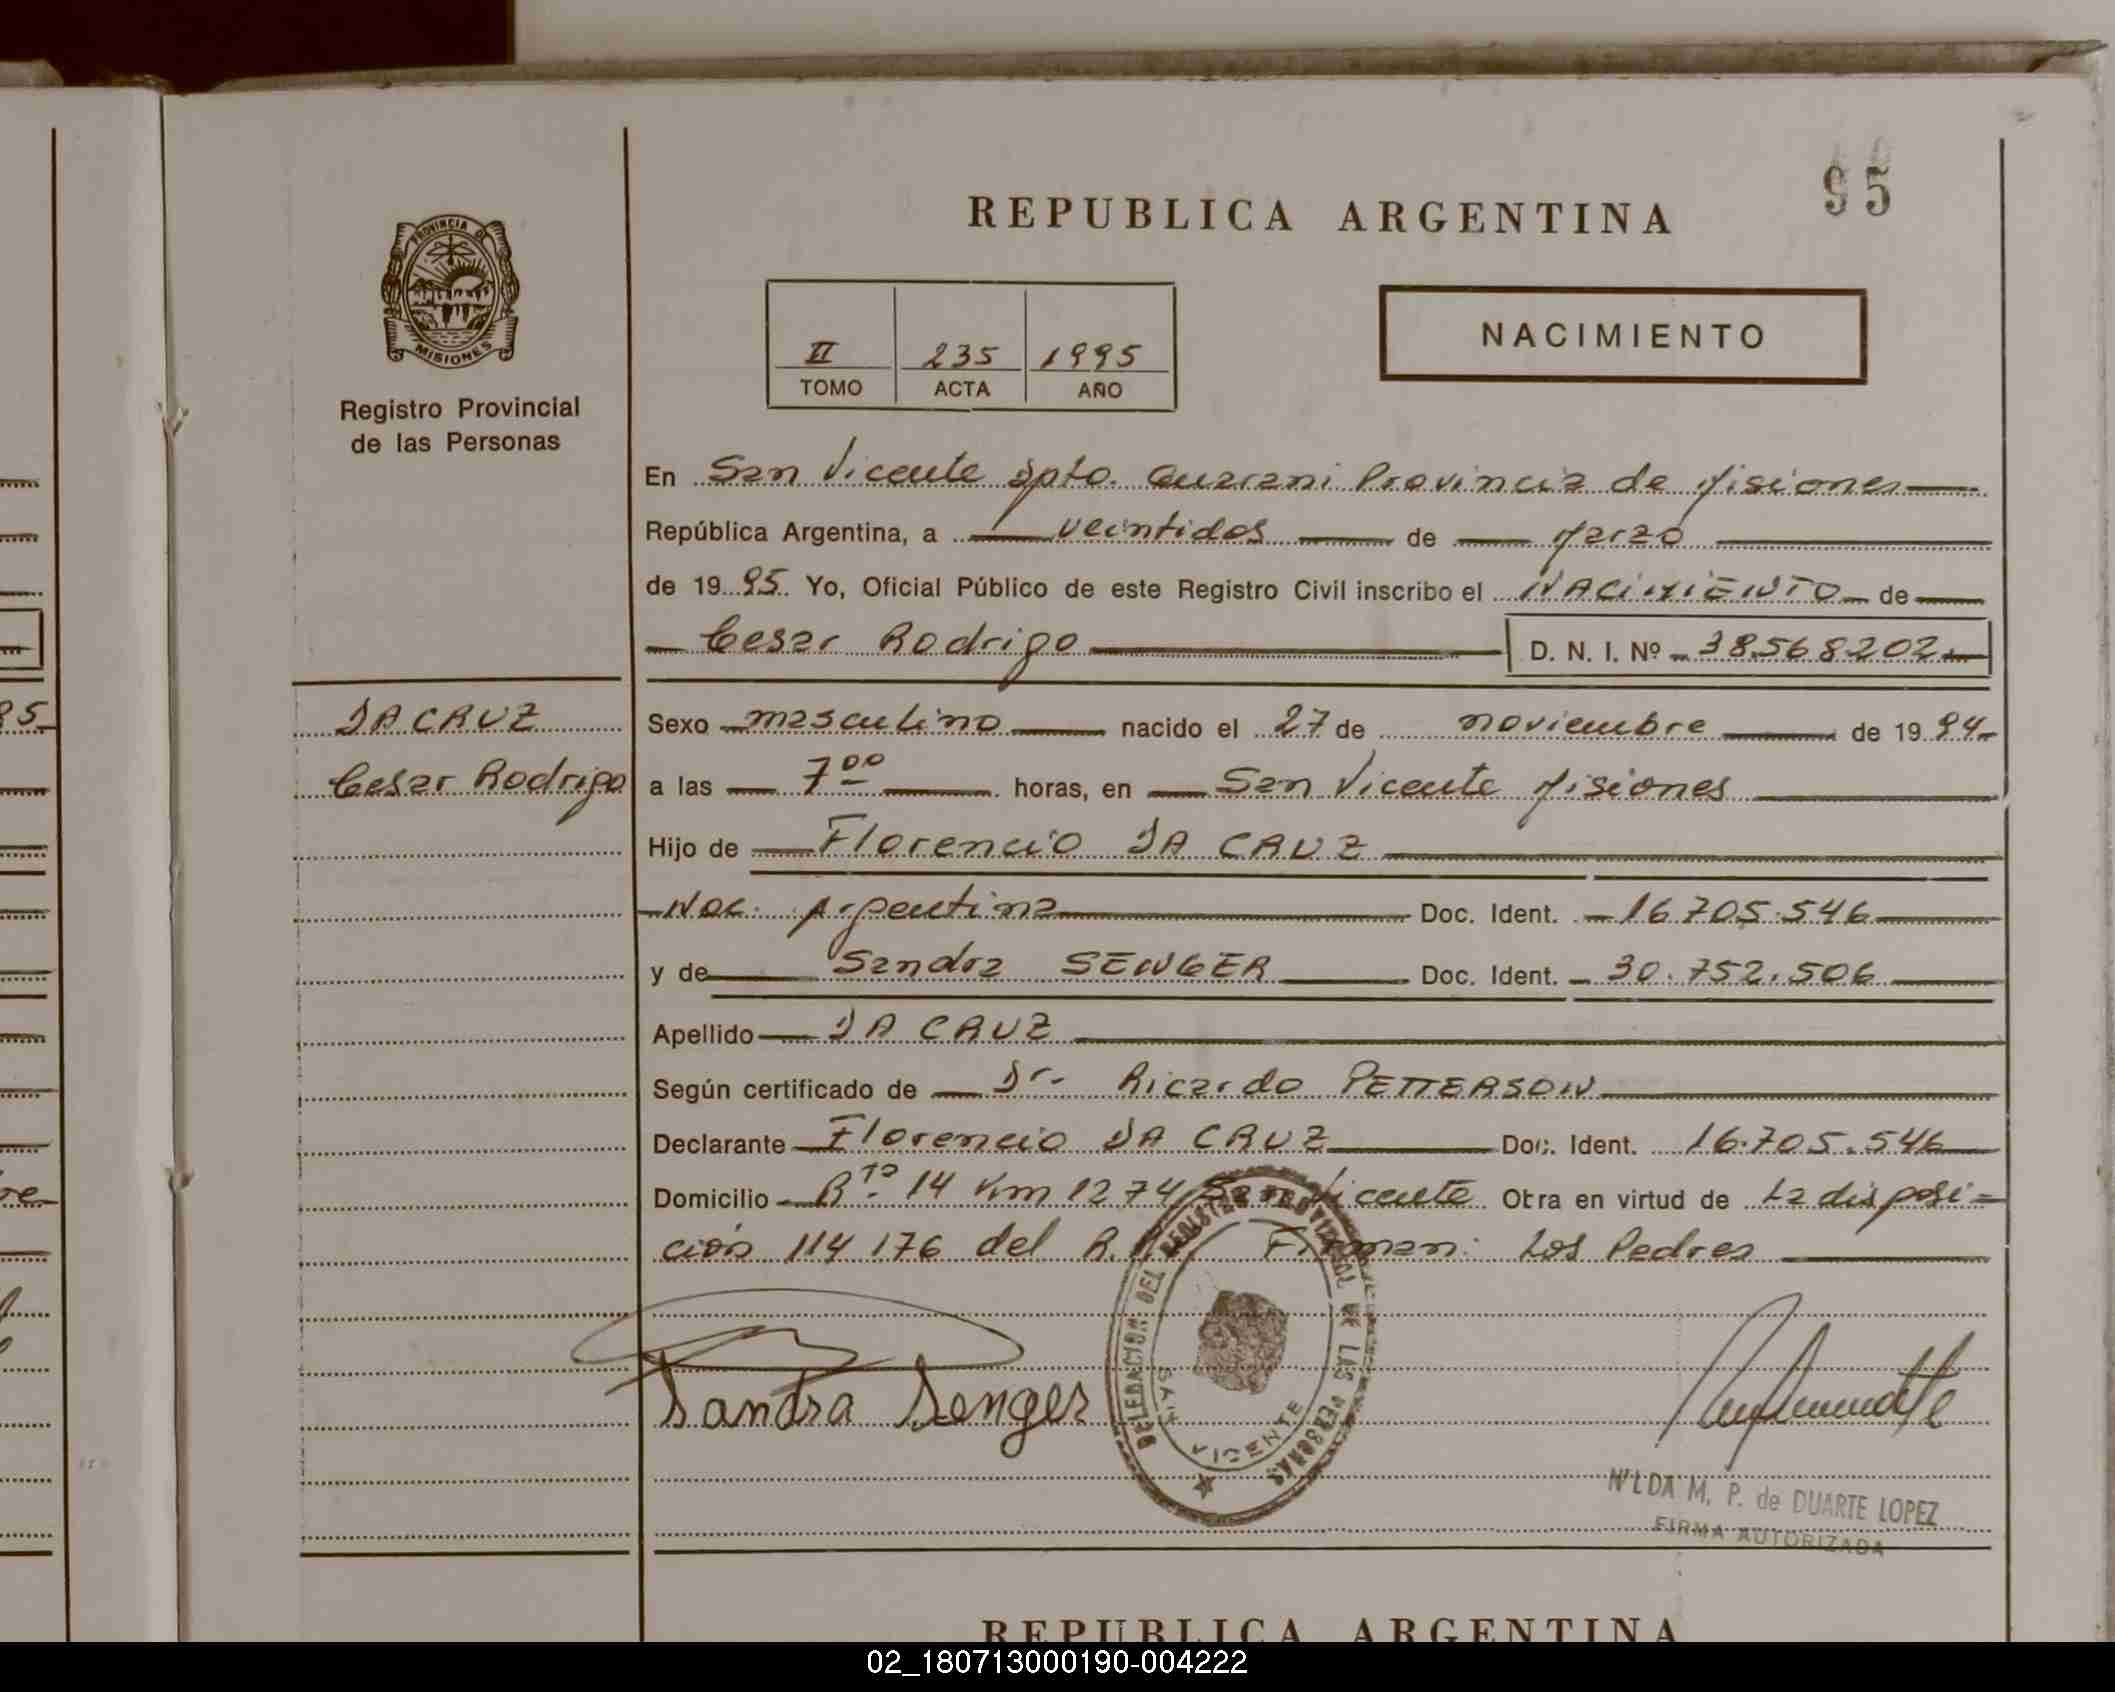 95
REPUBLICA ARGENTINA
PROVINCIA DE
MISIONES
Registro Provincial
de las Personas
II 235 1995
TOMO ACTA AÑO
NACIMIENTO
En San Vicente Dpto. Guarani Provincia de Misiones
República Argentina, a veintidos de Marzo
de 1995. Yo, Oficial Público de este Registro Civil inscribo el NACIMIENTO de
Cesar Rodrigo D. N. I. Nº 38.568202
DA CRUZ
Cesar Rodrigo
Sexo masculino nacido el 27 de noviembre de 1994
a las 7⁰⁰ horas, en San Vicente Misiones
Hijo de Florencio DA CRUZ
Nac. Argentina Doc. Ident. 16.705.546
y de Sandra SENGER Doc. Ident. 30.752.506
Apellido DA CRUZ
Según certificado de Dr. Ricardo PETTERSON
Declarante Florencio DA CRUZ Doc. Ident. 16.705.546
Domicilio Rta. 14 Km 1274 San Vicente Otra en virtud de La disposi=
ción 114 176 del R. Firman: Los Padres
Sandra Senger
DELEGACION DEL REGISTRO PROVINCIAL DE LAS PERSONAS
SAN VICENTE
NILDA M. P. de DUARTE LOPEZ
FIRMA AUTORIZADA
REPUBLICA ARGENTINA
02_180713000190-004222